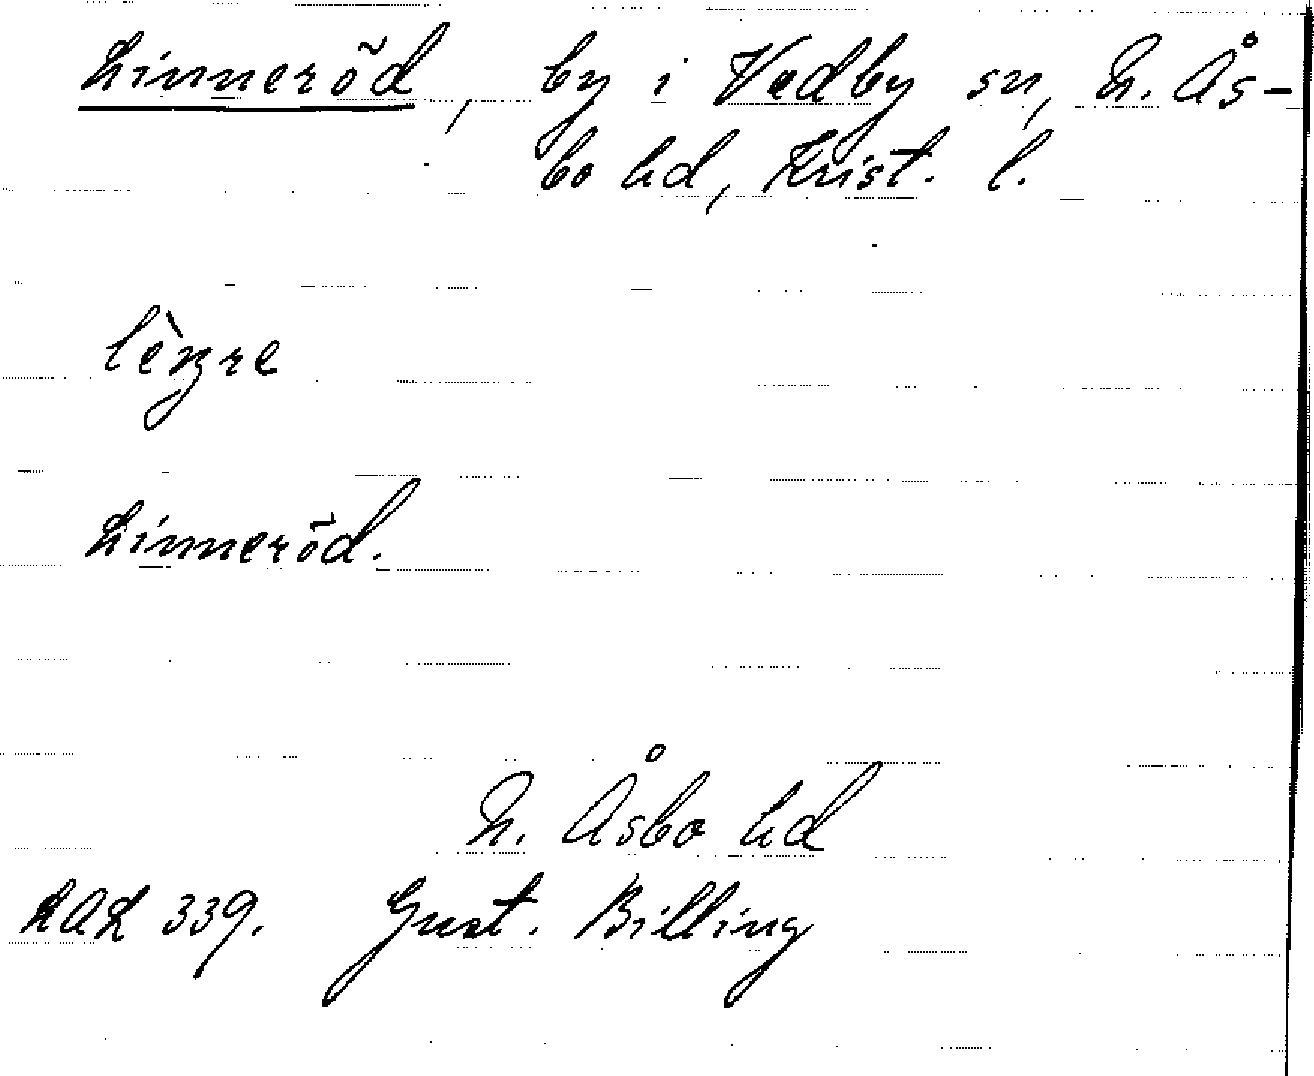 Linneröd, by i Vedby sn, N. Ås-
bo hd, Krist. l.
Linneröd.
N. Åsbo hd
LAL 339. Gust. Billing